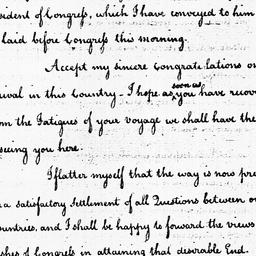 sident of Congress, which I have conveyed to him
laid before Congress this morning.
Accept my sincere Congratulations on
ival in this Country - I hope as soon as you have recov
om the Fatigues of your voyage we shall have the
seeing you here.
I flatter myself that the way is now pre
a satisfactory Settlement of all Questions between ou
ountries, and I shall be happy to foward the views
shes of Congress in attaining that desirable End.